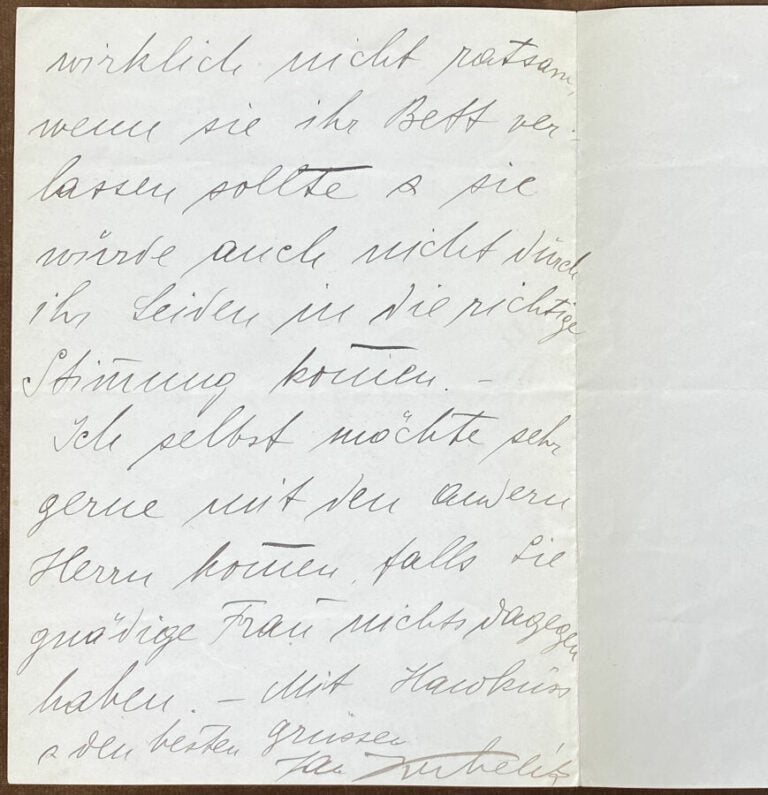 wirklich nicht ratsam,
wenn sie ihr Bett ver-
lassen sollte & sie
würde auch nicht durch
ihr Leiden in die richtige
Stim̄ung kom̄en. –
Ich selbst möchte sehr
gerne mit den andern
Herrn kom̄en, falls Sie
gnädige Frau nichts dagegen
haben. – Mit Handküss
& den besten grüssen
Jan Kubelik